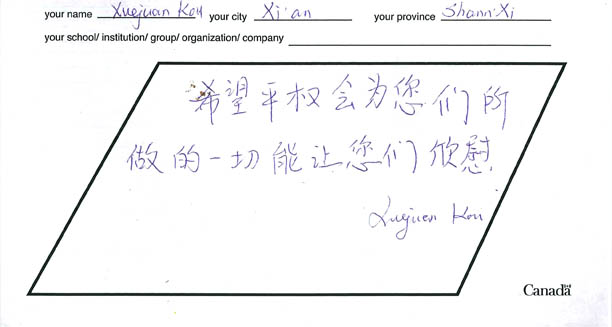 your name Xuejuan Kou your city Xi'an your province ShannXi
your school/ institution/ group/ organization/ company
希望平权会为您们所
做的一切能让您们欣慰
Xuejuan Kou
Canada